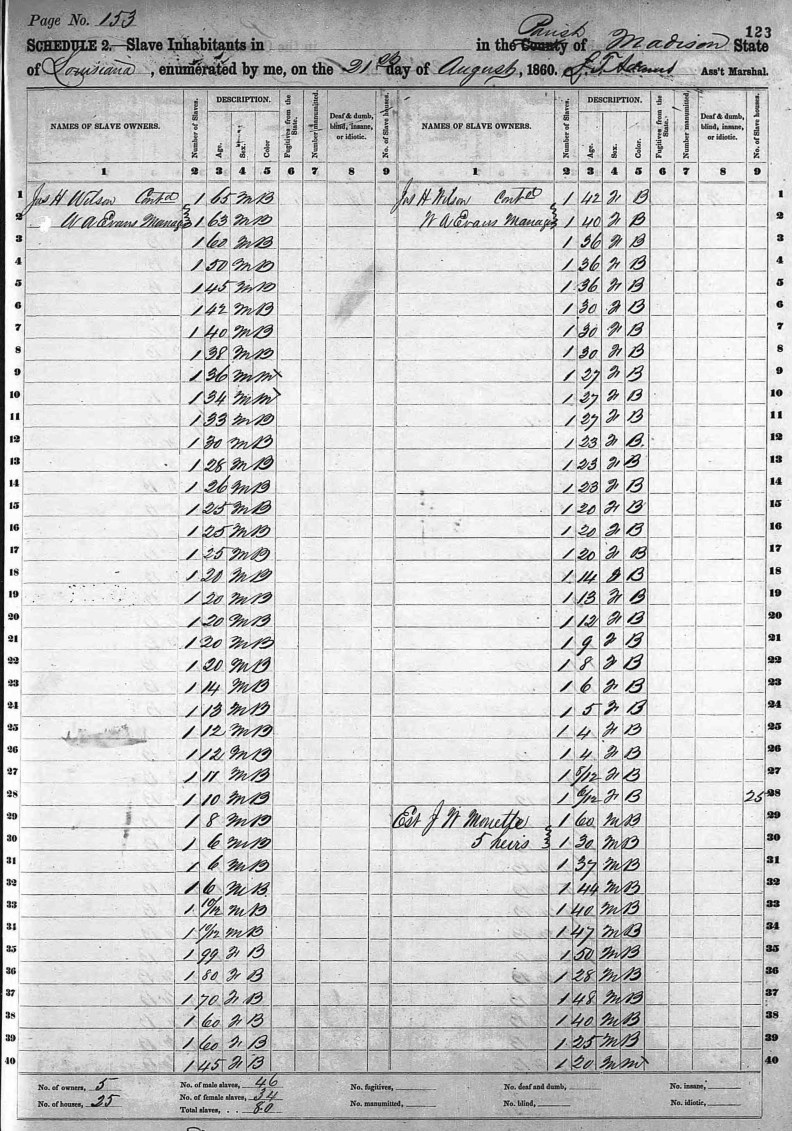 Page No. 153
123
SCHEDULE 2.—Slave Inhabitants in in the County Parish of Madison State
of Louisiana, enumerated by me, on the 21st day of August, 1860. Ass't Marshal.
NAMES OF SLAVE OWNERS. Number of Slaves. DESCRIPTION. Age. Sex. Color. Fugitives from the State. Number manumitted. Deaf & dumb, blind, insane, or idiotic. No. of Slave houses. NAMES OF SLAVE OWNERS. Number of Slaves. DESCRIPTION. Age. Sex. Color. Fugitives from the State. Number manumitted. Deaf & dumb, blind, insane, or idiotic. No. of Slave houses.
1 2 3 4 5 6 7 8 9 1 2 3 4 5 6 7 8 9
1 Jas H Wilson Contd 1 65 M B Jas H Wilson Contd 1 42 F B 1
2 W A Evans Manag 1 63 M B W A Evans Manag 1 40 F B 2
3 1 60 M B 1 36 F B 3
4 1 50 M B 1 36 F B 4
5 1 45 M B 1 36 F B 5
6 1 42 M B 1 30 F B 6
7 1 40 M B 1 30 F B 7
8 1 38 M B 1 30 F B 8
9 1 36 M M 1 27 F B 9
10 1 34 M M 1 27 F B 10
11 1 33 M B 1 27 F B 11
12 1 30 M B 1 23 F B 12
13 1 28 M B 1 23 F B 13
14 1 26 M B 1 23 F B 14
15 1 25 M B 1 20 F B 15
16 1 25 M B 1 20 F B 16
17 1 25 M B 1 20 F B 17
18 1 20 M B 1 14 F B 18
19 1 20 M B 1 13 F B 19
20 1 20 M B 1 12 F B 20
21 1 20 M B 1 9 F B 21
22 1 20 M B 1 8 F B 22
23 1 14 M B 1 6 F B 23
24 1 13 M B 1 5 F B 24
25 1 12 M B 1 4 F B 25
26 1 12 M B 1 4 F B 26
27 1 11 M B 1 5/12 F B 27
28 1 10 M B 1 6/12 F B 25 28
29 1 8 M B Est J W Monette 1 60 M B 29
30 1 6 M B 5 heirs 1 30 M B 30
31 1 6 M B 1 37 M B 31
32 1 6 M B 1 44 M B 32
33 1 10/12 M B 1 40 M B 33
34 1 10/12 M B 1 47 M B 34
35 1 99 F B 1 50 M B 35
36 1 80 F B 1 28 M B 36
37 1 70 F B 1 48 M B 37
38 1 60 F B 1 40 M B 38
39 1 60 F B 1 25 M B 39
40 1 45 F B 1 20 M M 40
No. of owners, 5 No. of male slaves, 46 No. fugitives, No. of deaf and dumb, No. insane,
No. of houses, 25 No. of female slaves, 34 No. manumitted, No. blind, No. idiotic,
Total slaves, 80